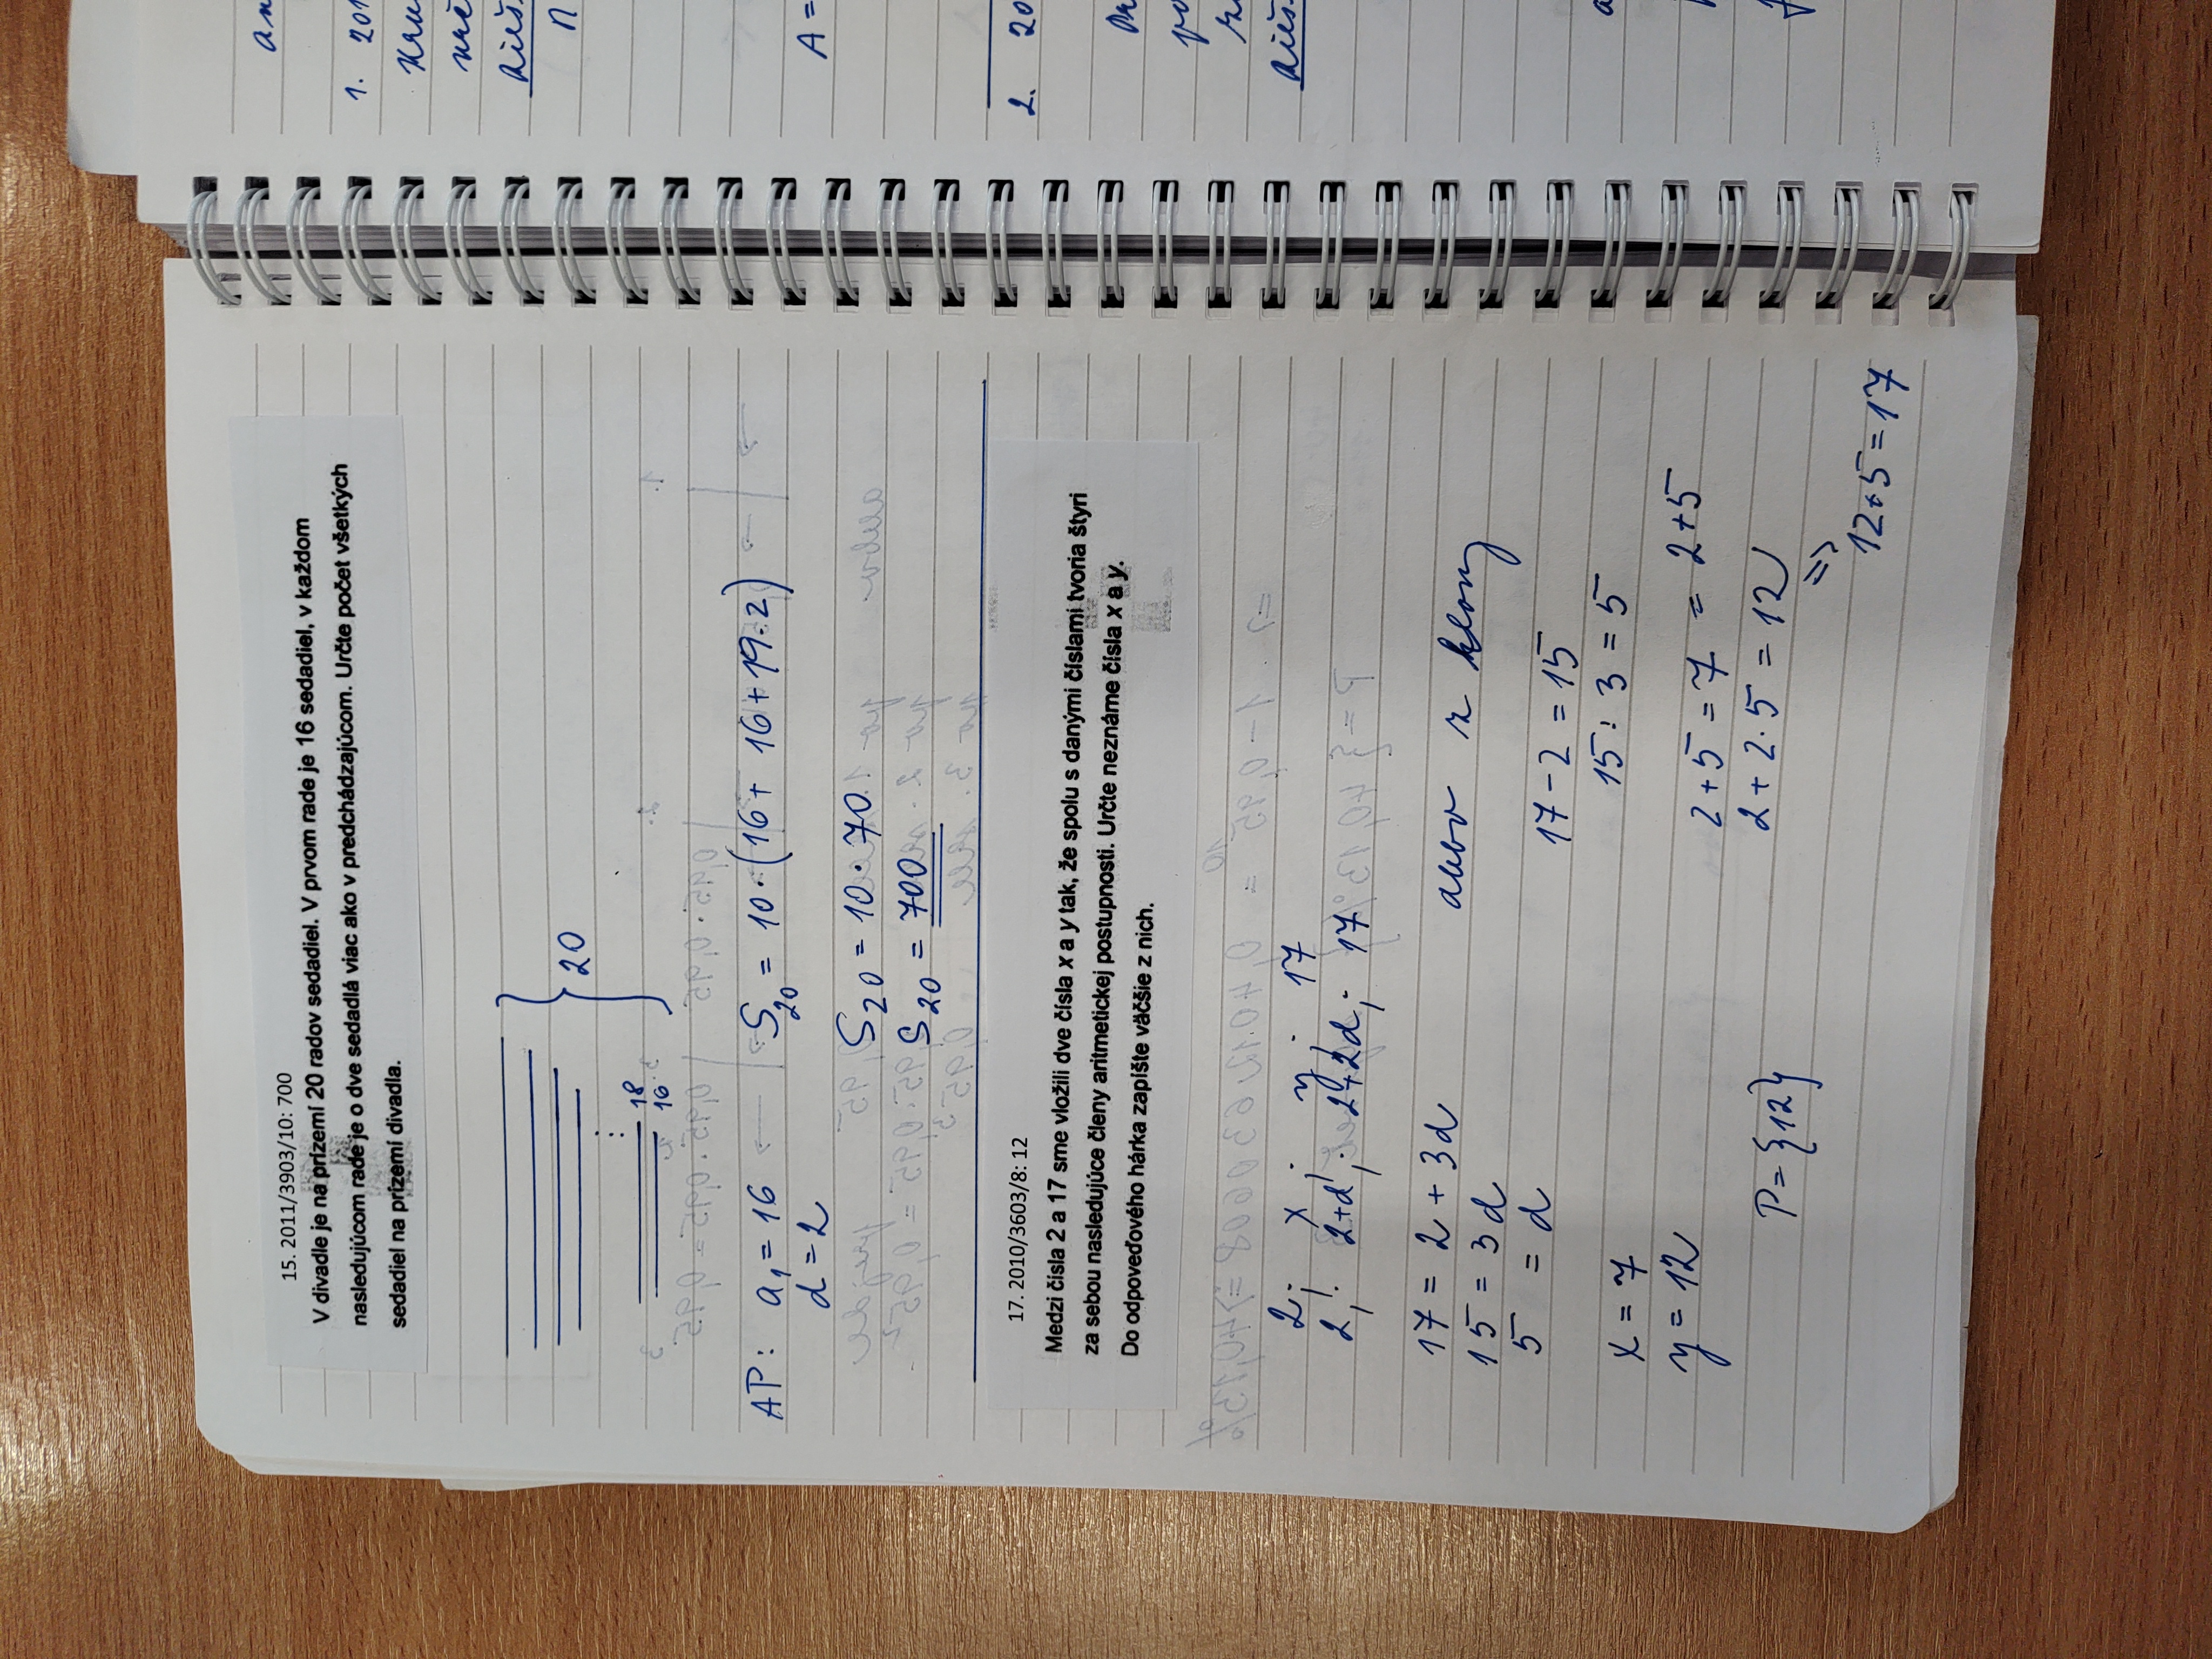 15. 2011/3903/10: 700
V divadle je na prízemí 20 radov sedadiel. V prvom rade je 16 sedadiel, v každom
nasledujúcom rade je o dve sedadlá viac ako v predchádzajúcom. Určte počet všetkých
sedadiel na prízemí divadla.
20
18
16
AP: a₁ = 16
d = 2
S₂₀ = 10·(16 + 16 + 19·2)
S₂₀ = 10·70
S₂₀ = 700
17. 2010/3603/8: 12
Medzi čísla 2 a 17 sme vložili dve čísla x a y tak, že spolu s danými číslami tvoria štyri
za sebou nasledujúce členy aritmetickej postupnosti. Určte neznáme čísla x a y.
Do odpoveďového hárka zapíšte väčšie z nich.
2; x; y; 17
2; 2+d; 2+2d; 17
17 = 2 + 3d
15 = 3d
5 = d
x = 7
y = 12
P = {12}
alebo
17 - 2 = 15
15 : 3 = 5
2 + 5 = 7 = 2+5
2 + 2·5 = 12
=>
12+5=17
1. 201
A =
2. 20